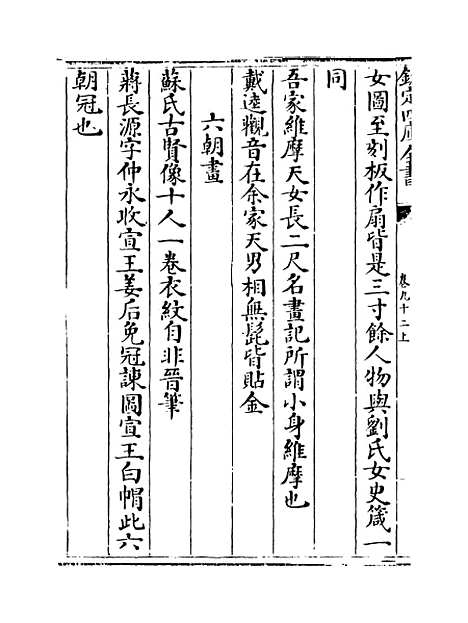 欽定四庫全書
卷九十二上
女圖至刻板作扇皆是三寸餘人物與劉氏女史箴一
同
吾家維摩天女長二尺名畫記所謂小身維摩也
戴逵觀音在余家天男相無髭皆貼金
六朝畫
蘇氏古賢像十人一卷衣紋自非晉筆
蔣長源字仲永收宣王姜后免冠諫圖宣王白帽此六
朝冠也